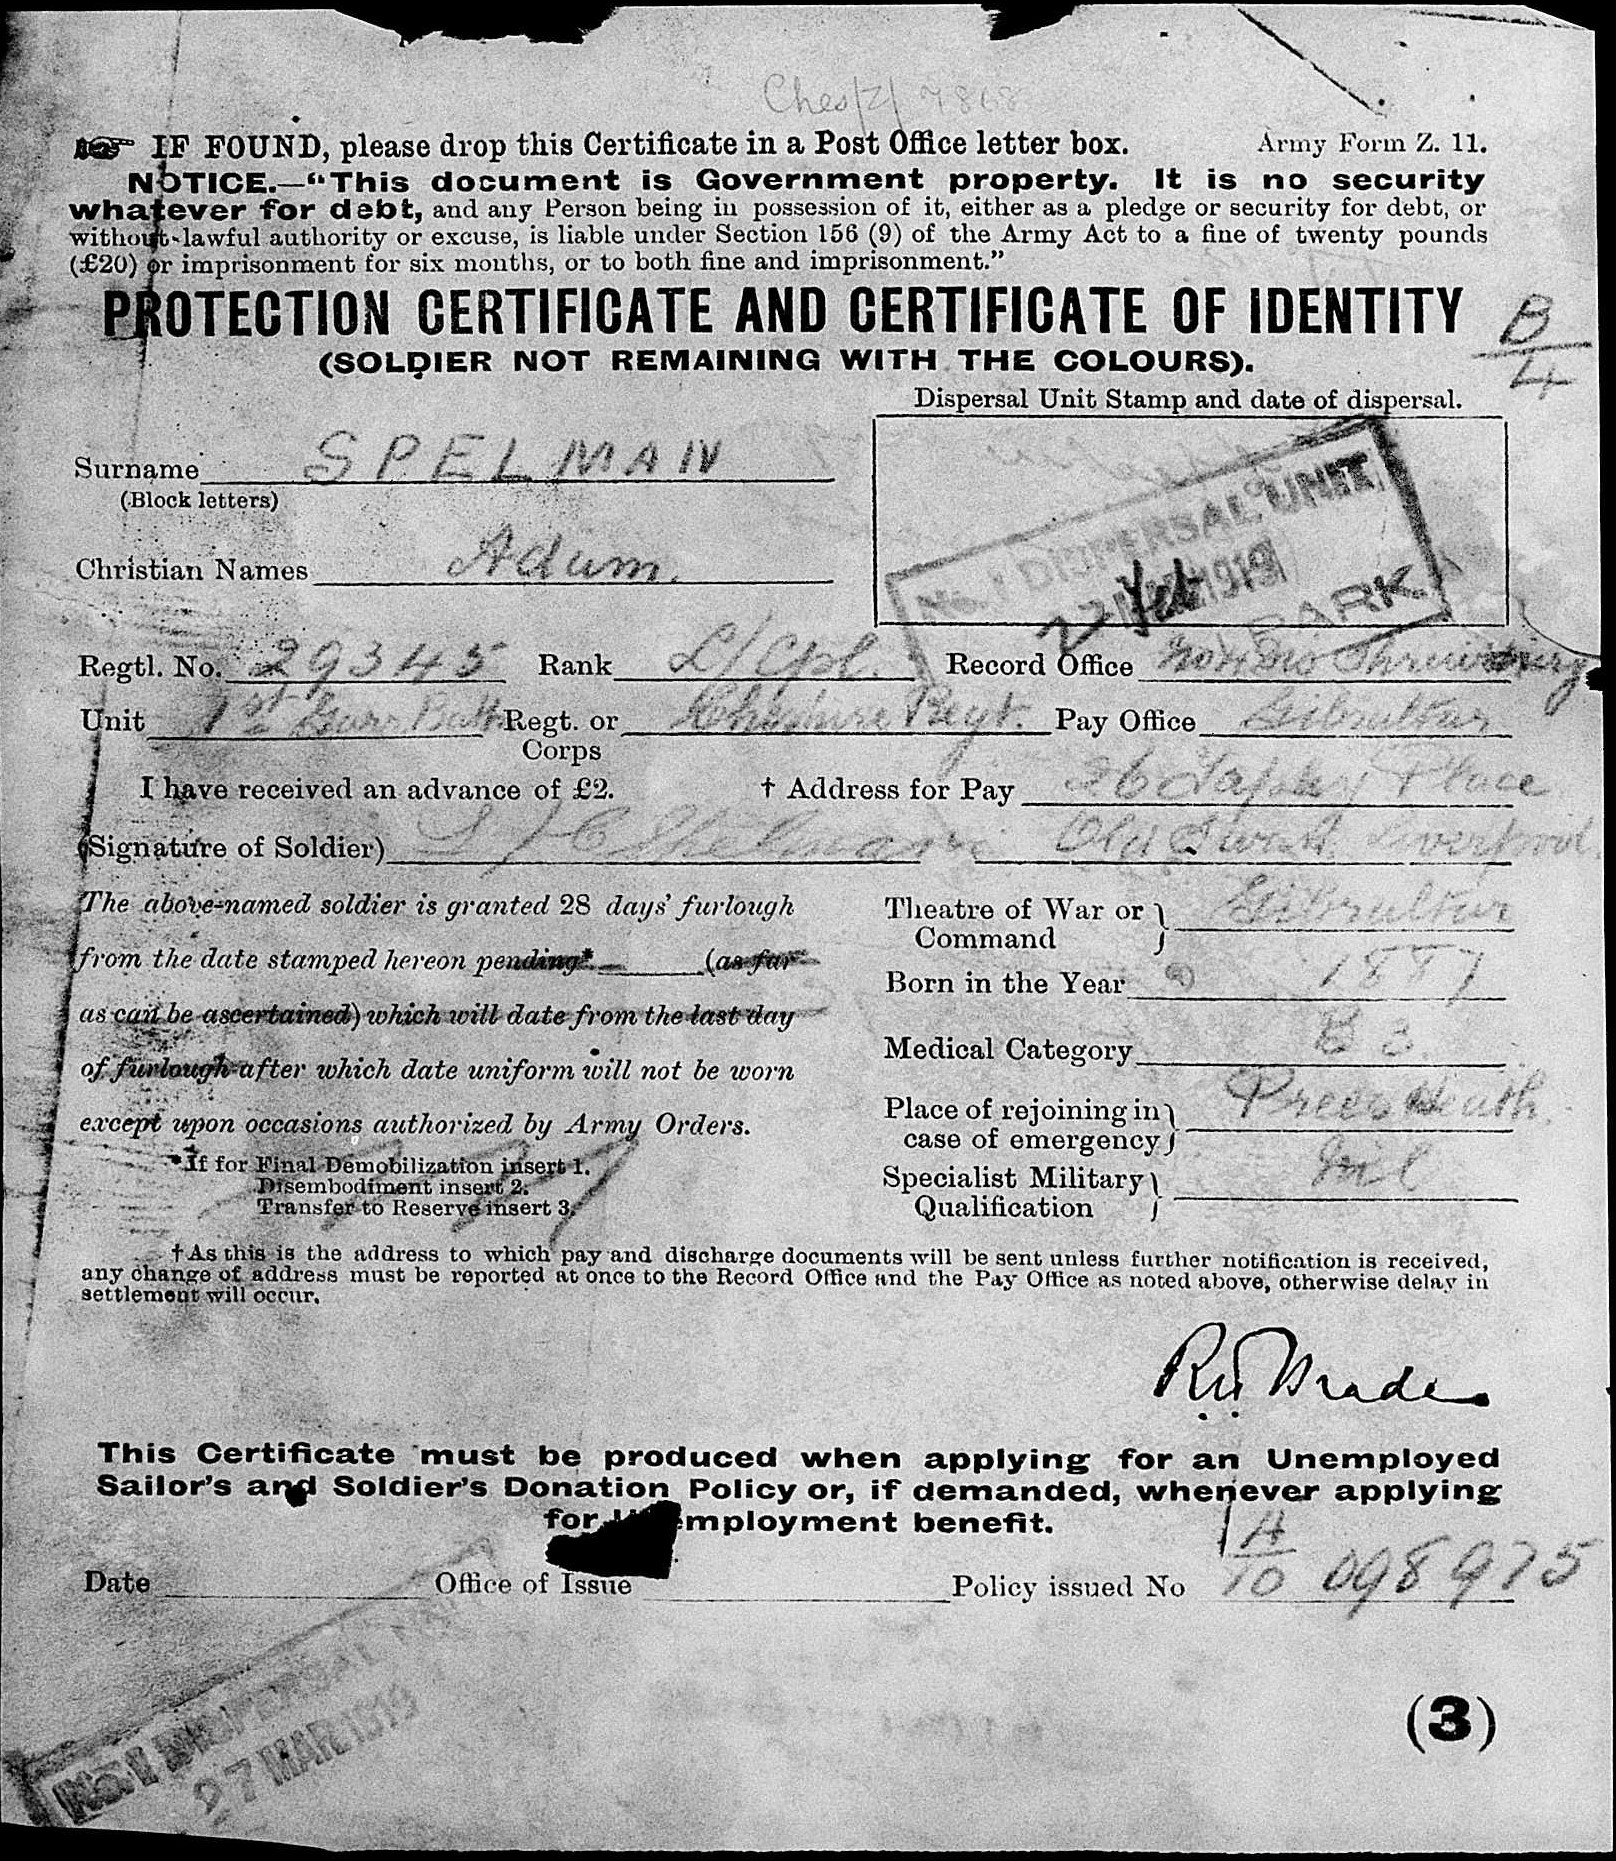 Ches/Z/ 7868
IF FOUND, please drop this Certificate in a Post Office letter box. Army Form Z. 11.
NOTICE.—“This document is Government property. It is no security
whatever for debt, and any Person being in possession of it, either as a pledge or security for debt, or
without lawful authority or excuse, is liable under Section 156 (9) of the Army Act to a fine of twenty pounds
(£20) or imprisonment for six months, or to both fine and imprisonment.”
PROTECTION CERTIFICATE AND CERTIFICATE OF IDENTITY
(SOLDIER NOT REMAINING WITH THE COLOURS).
B/4
Dispersal Unit Stamp and date of dispersal.
No. 1 DISPERSAL UNIT
27 1919
PARK.
Surname SPELMAN
(Block letters)
Christian Names Adam.
Regtl. No. 29345 Rank L/Cpl. Record Office Shrewsbury
Unit 1st Garr Battn Regt. or Corps Cheshire Regt. Pay Office Gibraltar
I have received an advance of £2. † Address for Pay 26 Place
(Signature of Soldier) Old Liverpool.
The above-named soldier is granted 28 days’ furlough
from the date stamped hereon pending* (as far
as can be ascertained) which will date from the last day
of furlough after which date uniform will not be worn
except upon occasions authorized by Army Orders.
*If for Final Demobilization insert 1.
Disembodiment insert 2.
Transfer to Reserve insert 3.
Theatre of War or Command Gibraltar
Born in the Year 1887
Medical Category B
Place of rejoining in case of emergency Prees Heath.
Specialist Military Qualification Nil
†As this is the address to which pay and discharge documents will be sent unless further notification is received,
any change of address must be reported at once to the Record Office and the Pay Office as noted above, otherwise delay in
settlement will occur.
This Certificate must be produced when applying for an Unemployed
Sailor’s and Soldier’s Donation Policy or, if demanded, whenever applying
for employment benefit.
Date Office of Issue Policy issued No A/10 098975
No. 1 DISPERSAL UNIT
27 MAR 1919
(3)